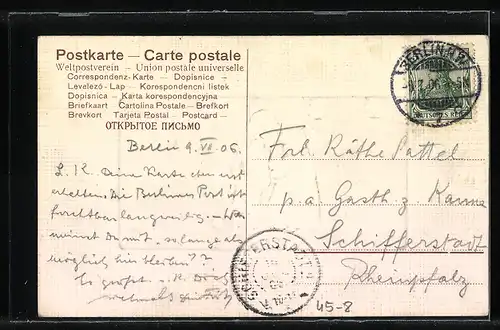 Postkarte — Carte postale
Weltpostverein — Union postale universelle
Correspondenz-Karte — Dopisnice —
Levelező-Lap — Korespondencni listek
Dopisnica — Karta korespondencyjna
Briefkaart — Cartolina Postale — Brefkort
Brevkort — Tarjeta Postal — Postcard —
ОТКРЫТОЕ ПИСЬМО
BERLIN
DEUTSCHES REICH
Berlin 9. VII. 06.
L. K. Deine Karte eben erst
erhalten. Die Berliner Post ist
furchtbar langweilig. — Was
meinst Du mit, so lange als
möglich hier bleiben??
Es grüßt
Frl. Käthe Pattel
p. a. Gasth. z. Kanne
Schifferstadt
Rheinpfalz
SCHIFFERSTADT
45-8